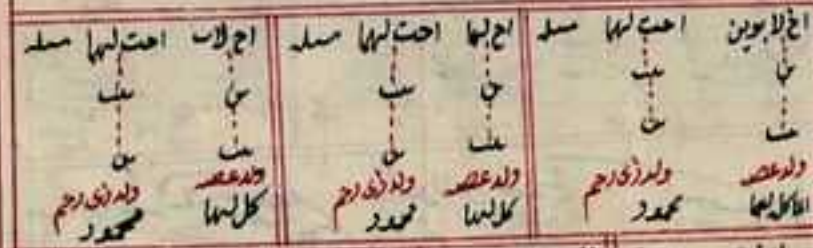 اخ لابوين احت لهما مسله
ىں ىىت
ىىت ىں
ولد عصبه ولد ذى رحم
الماكل لهما محمود
اح لهما احت لهما مسله
ىں ىىت
ىىت ىں
ولد عصبه ولد ذى رحم
كل لهما محمود
اح لاب احت لهما مسله
ىں ىىت
ىىت ىں
ولد عصبه ولد ذى رحم
كل لهما محمود